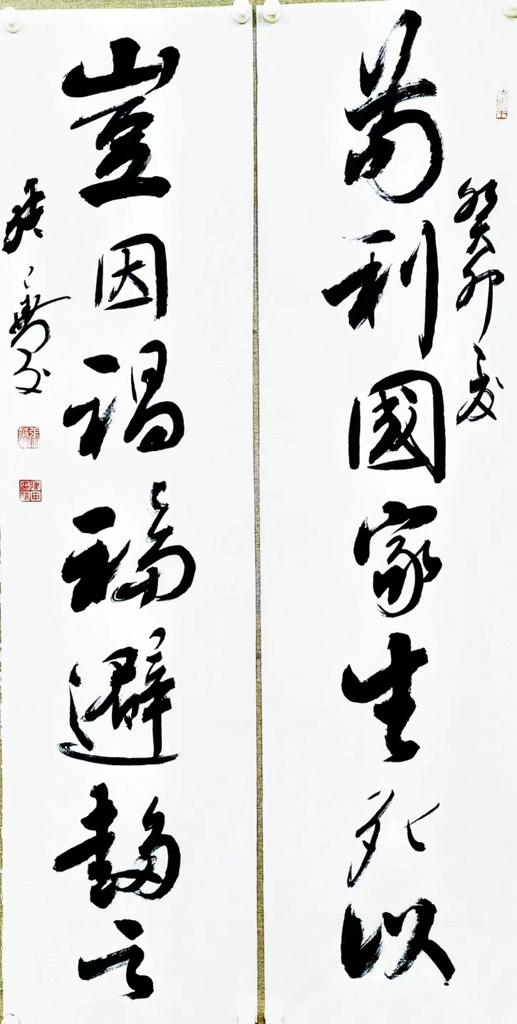 癸卯夏
苟利國家生死以
豈因禍福避趨之